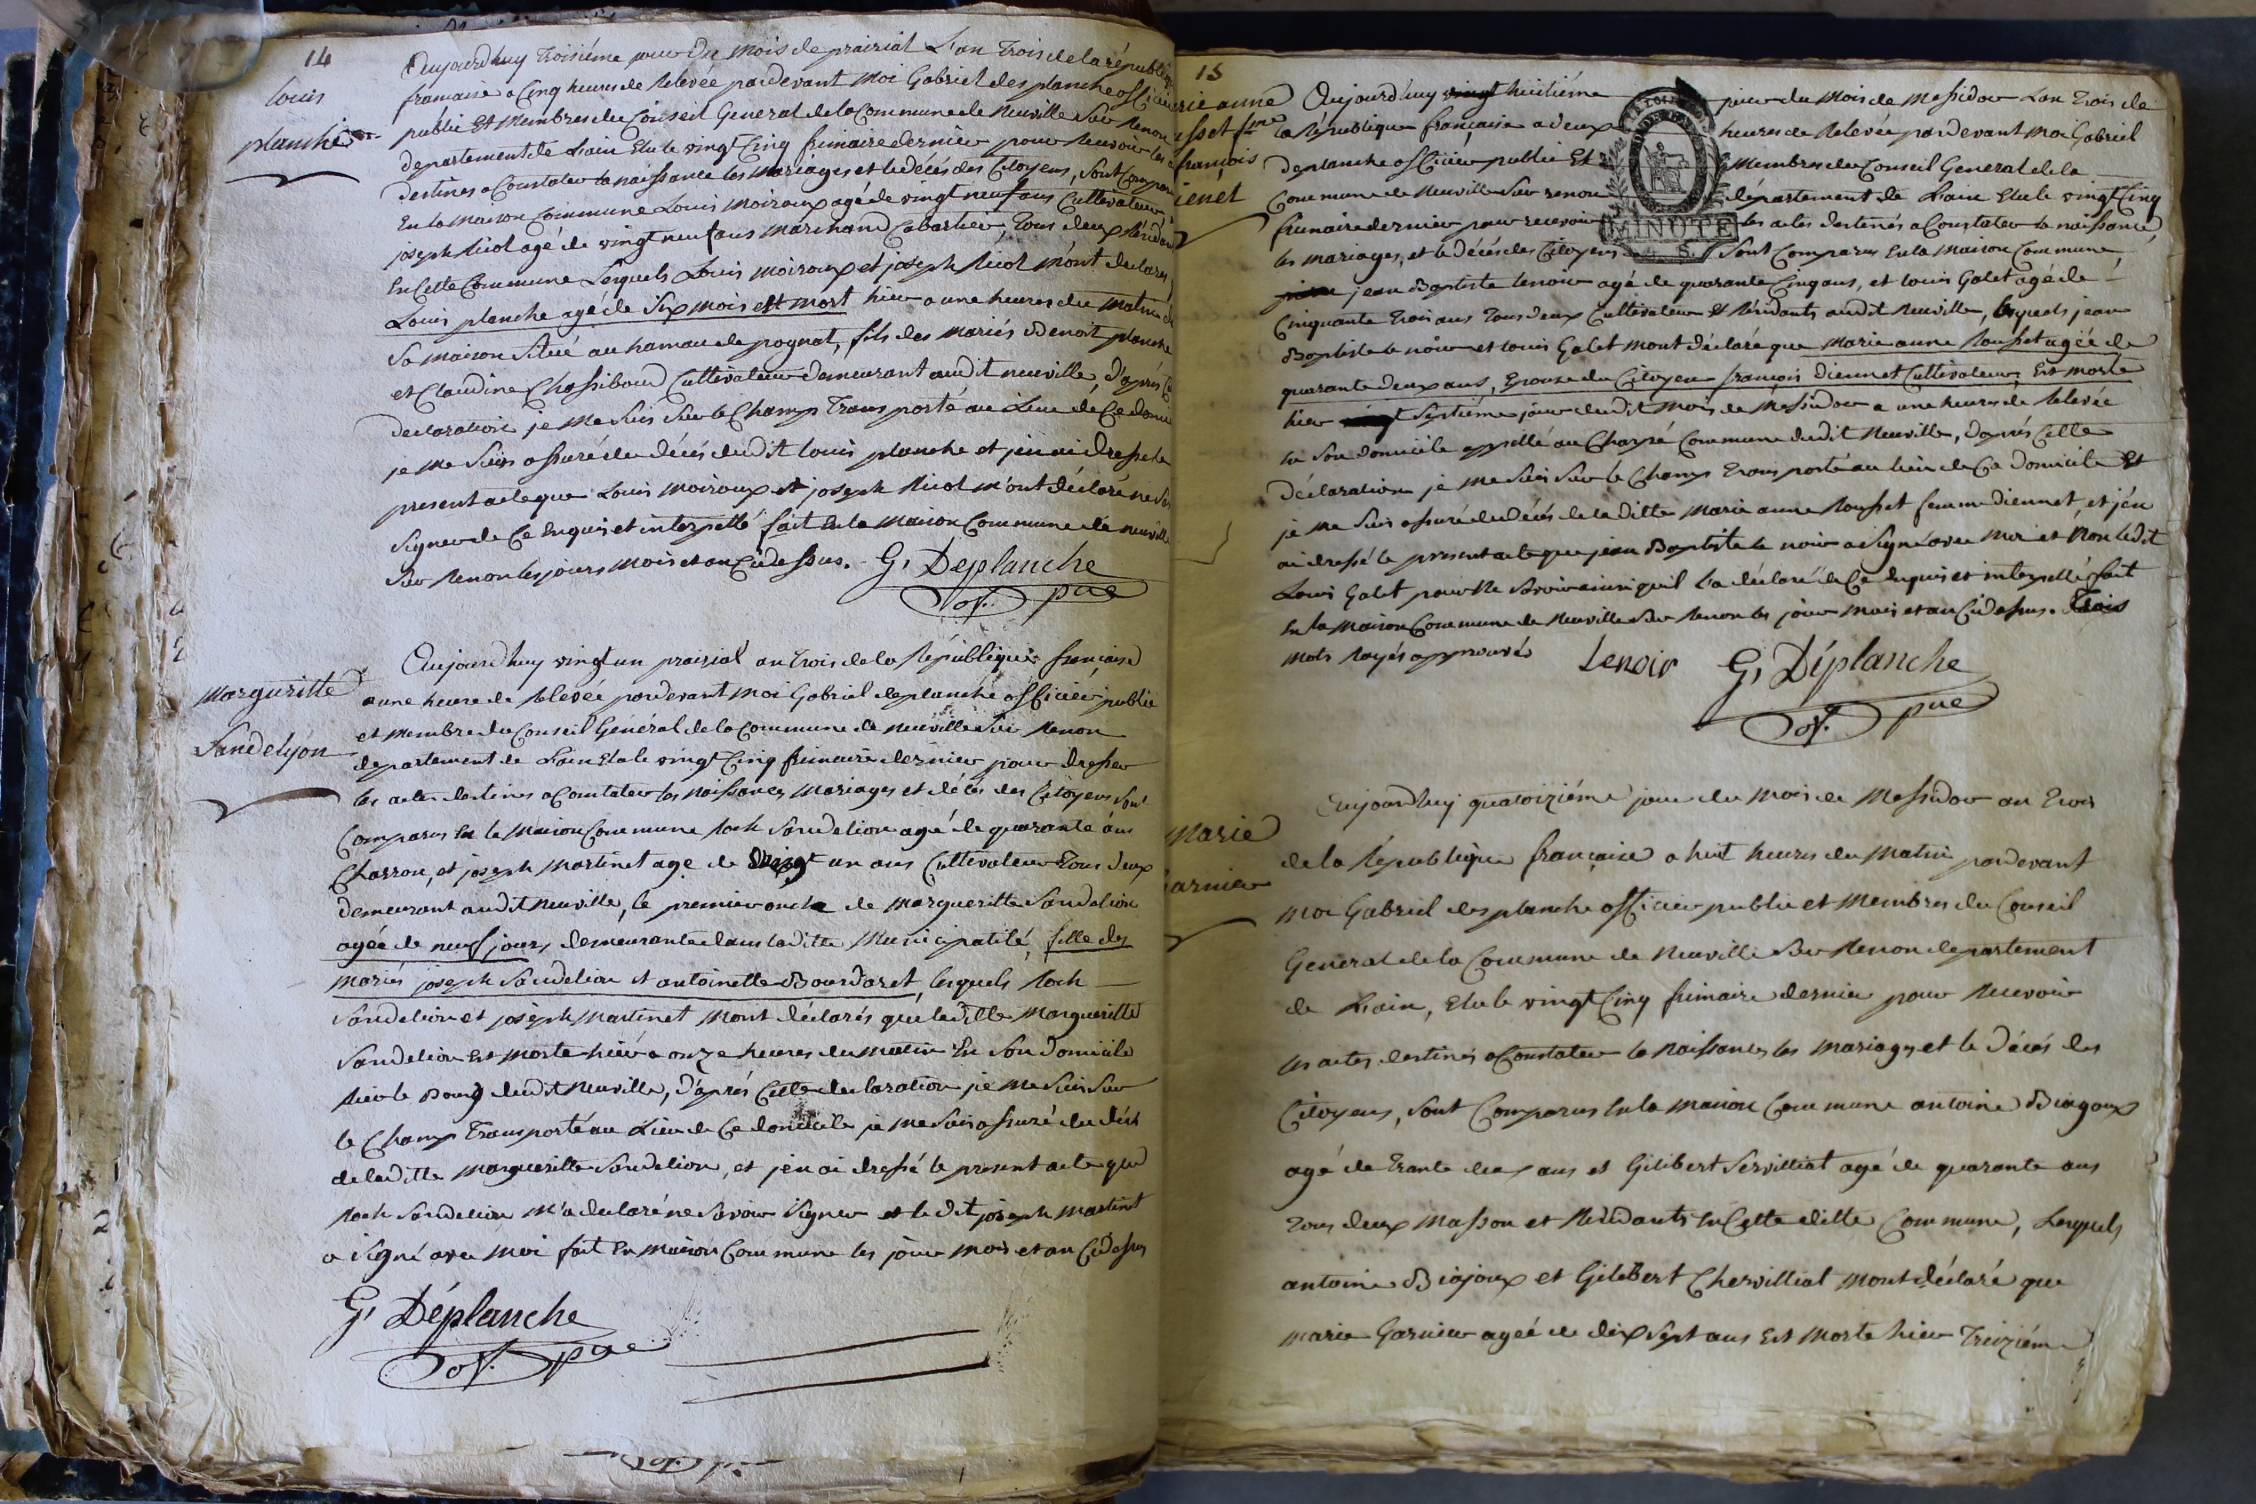 14
louis
planche
Aujourdhuy troisiéme jour du mois de prairial L'an trois de la républi
francaise a Cinq heures de Relevée pardevant Moi Gabriel desplanche officier
public Et Membres du Conseil General de la Commune de Neuville Sur Renon
departement de L'ain Elu le vingt Cinq frimaire dernier pour Recevoir les
destinés a Constater la naissance les Mariages et le décés des Citoyens, Sont Compar
En la maison Commune Louis Moiroux agé de vingt neuf ans Cultivateur,
joseph Nicol agé de vingt neuf ans Marchand Cabartier, tous deux Résidan
En Cette Commune Lesquels Louis Moiroux et joseph Nicol m'ont declarés
Louis planche agé de Six mois est mort hier a une heures du Matin
Sa maison Situé au hamau de pognat, fils des mariés Benoit planche
et Claudine Chossibour Cultivateur demeurant audit neuville, d'aprés
declaration je Me Suis Sur le Champ Transporté au Lieu de Ce domi
je me Suis assuré du décés dudit Louis planche et j'en ai dressé le
present acte que Louis Moiroux et joseph Nicol m'ont déclaré ne S
Signer de Ce Enquis et interpellé fait En la Maison Commune de neuville
Sur Renon les jours mois et an Cidessus. G, Deplanche
of. pue
Margueritte
Sandelyon
Aujourdhuy vingt un prairial an trois de la République francaise
a une heure de Relevée pardevant Moi Gabriel deplanche officier public
et Membre du Conseil Général de la Commune de Neuville Sur Renon
departement de L'ain Elu le vingt Cinq frimaire dernier pour dresser
les actes destinés a Constater les Naissances Mariages et décés des Citoyens Sont
Comparus En la Maison Commune Roch Sandelion agé de quarante ans
Charron, et joseph Martinet age de vingt un ans Cultivateur tous deux
demeurant audit Neuville, le premier oncle de Margueritte Sandelion
agée de neuf jours, demeurante dans laditte Municipalité, fille des
Mariés joseph Sandelion et antoinette Bourdaret, lesquels Roch
Sandelion et joseph Martinet Mont déclarés que laditte Margueritte
Sandelion Est Morte hier a onze heures du Matin En Son domicile
Rier le Bourg dudit Neuville, d'aprés Cette declaration je Me Suis Sur
le Champ Transporté au Lieu de Ce domicile je me Suis assuré du décé
de laditte Margueritte Sandelion, et j'en ai dressé le present acte que
Roch Sandelion M'a declaré ne Savoir Signer et le dit joseph Martinet
a Signé avec Moi fait En Maison Commune les jour Mois et an Cidessus
G, Déplanche
of. pue
15
rie anne
sset fme
francois
ienet
Aujourd'huy vingt huitiéme jour du Mois de Messidor Lan trois de
la République française a deux heures de Relevée pardevant Moi Gabriel
deplanche officier public Et Membres du Conseil General de la
Commune de Neuville Sur renon département de L'ain Elu le vingt Cinq
frimaire dernier pour recevoir les actes destinés a Constater la naissance,
les mariages, et le décés des Citoyens Sont Comparus En la Maison Commune,
MINUTE
jean Baptiste Lenoir agé de quarante Cinq ans, et Louis Galet agé de
Cinquante trois ans tous deux Cultivateur Et Résidants audit Neuville, lesquels jean
Baptiste le noir et Louis Galet Mont déclaré que Marie anne Rousset agée de
quarante deux ans, Epouse du Citoyen françois diennet Cultivateur, Est Morte
hier vingt Septiéme jour dudit Mois de Messidor a une heures de Relevée
En Son domicile appellé au Charpé Commune dudit Neuville, d'aprés Cette
déclaration je Me Suis Sur le Champ transporté au lieu de Ce domicile Et
je Me Suis assuré du décés de la ditte Marie anne Rousset femme diennet, et j'en
ai dressé le present acte que jean Baptiste le noir a Signé avec Moi et Non ledit
Louis Galet pour Ne Savoir ainsi quil L'a déclaré de Ce Enquis et interpellé, fait
En la Maison Commune de Neuville Sur Renon les jour Mois et an Cidessus. Trois
Mots Rayés approuvés Lenoir G, Déplanche
of. pue
Marie
arnier
Aujourdhuy quatorziéme jour du Mois de Messidor an trois
de la République française a huit heures du Matin pardevant
Moi Gabriel desplanche officier public et Membres du Conseil
General de la Commune de Neuville Sur Renon departement
de L'ain, Elu le vingt Cinq frimaire dernier pour Recevoir
les actes destinés a Constater la Naissances les Mariages et le Décés des
Citoyens, Sont Comparus En la Maison Commune antoine Biagoux
agé de trante deux ans et Gilibert Servilliat agé de quarante ans
tous deux Masson et Résidants En Cette ditte Commune, Lesquels
antoine Biajoux et Gilibert Chervilliat Mont déclaré que
Marie Garnier ageé de dix Sept ans Est Morte hier Treiziéme